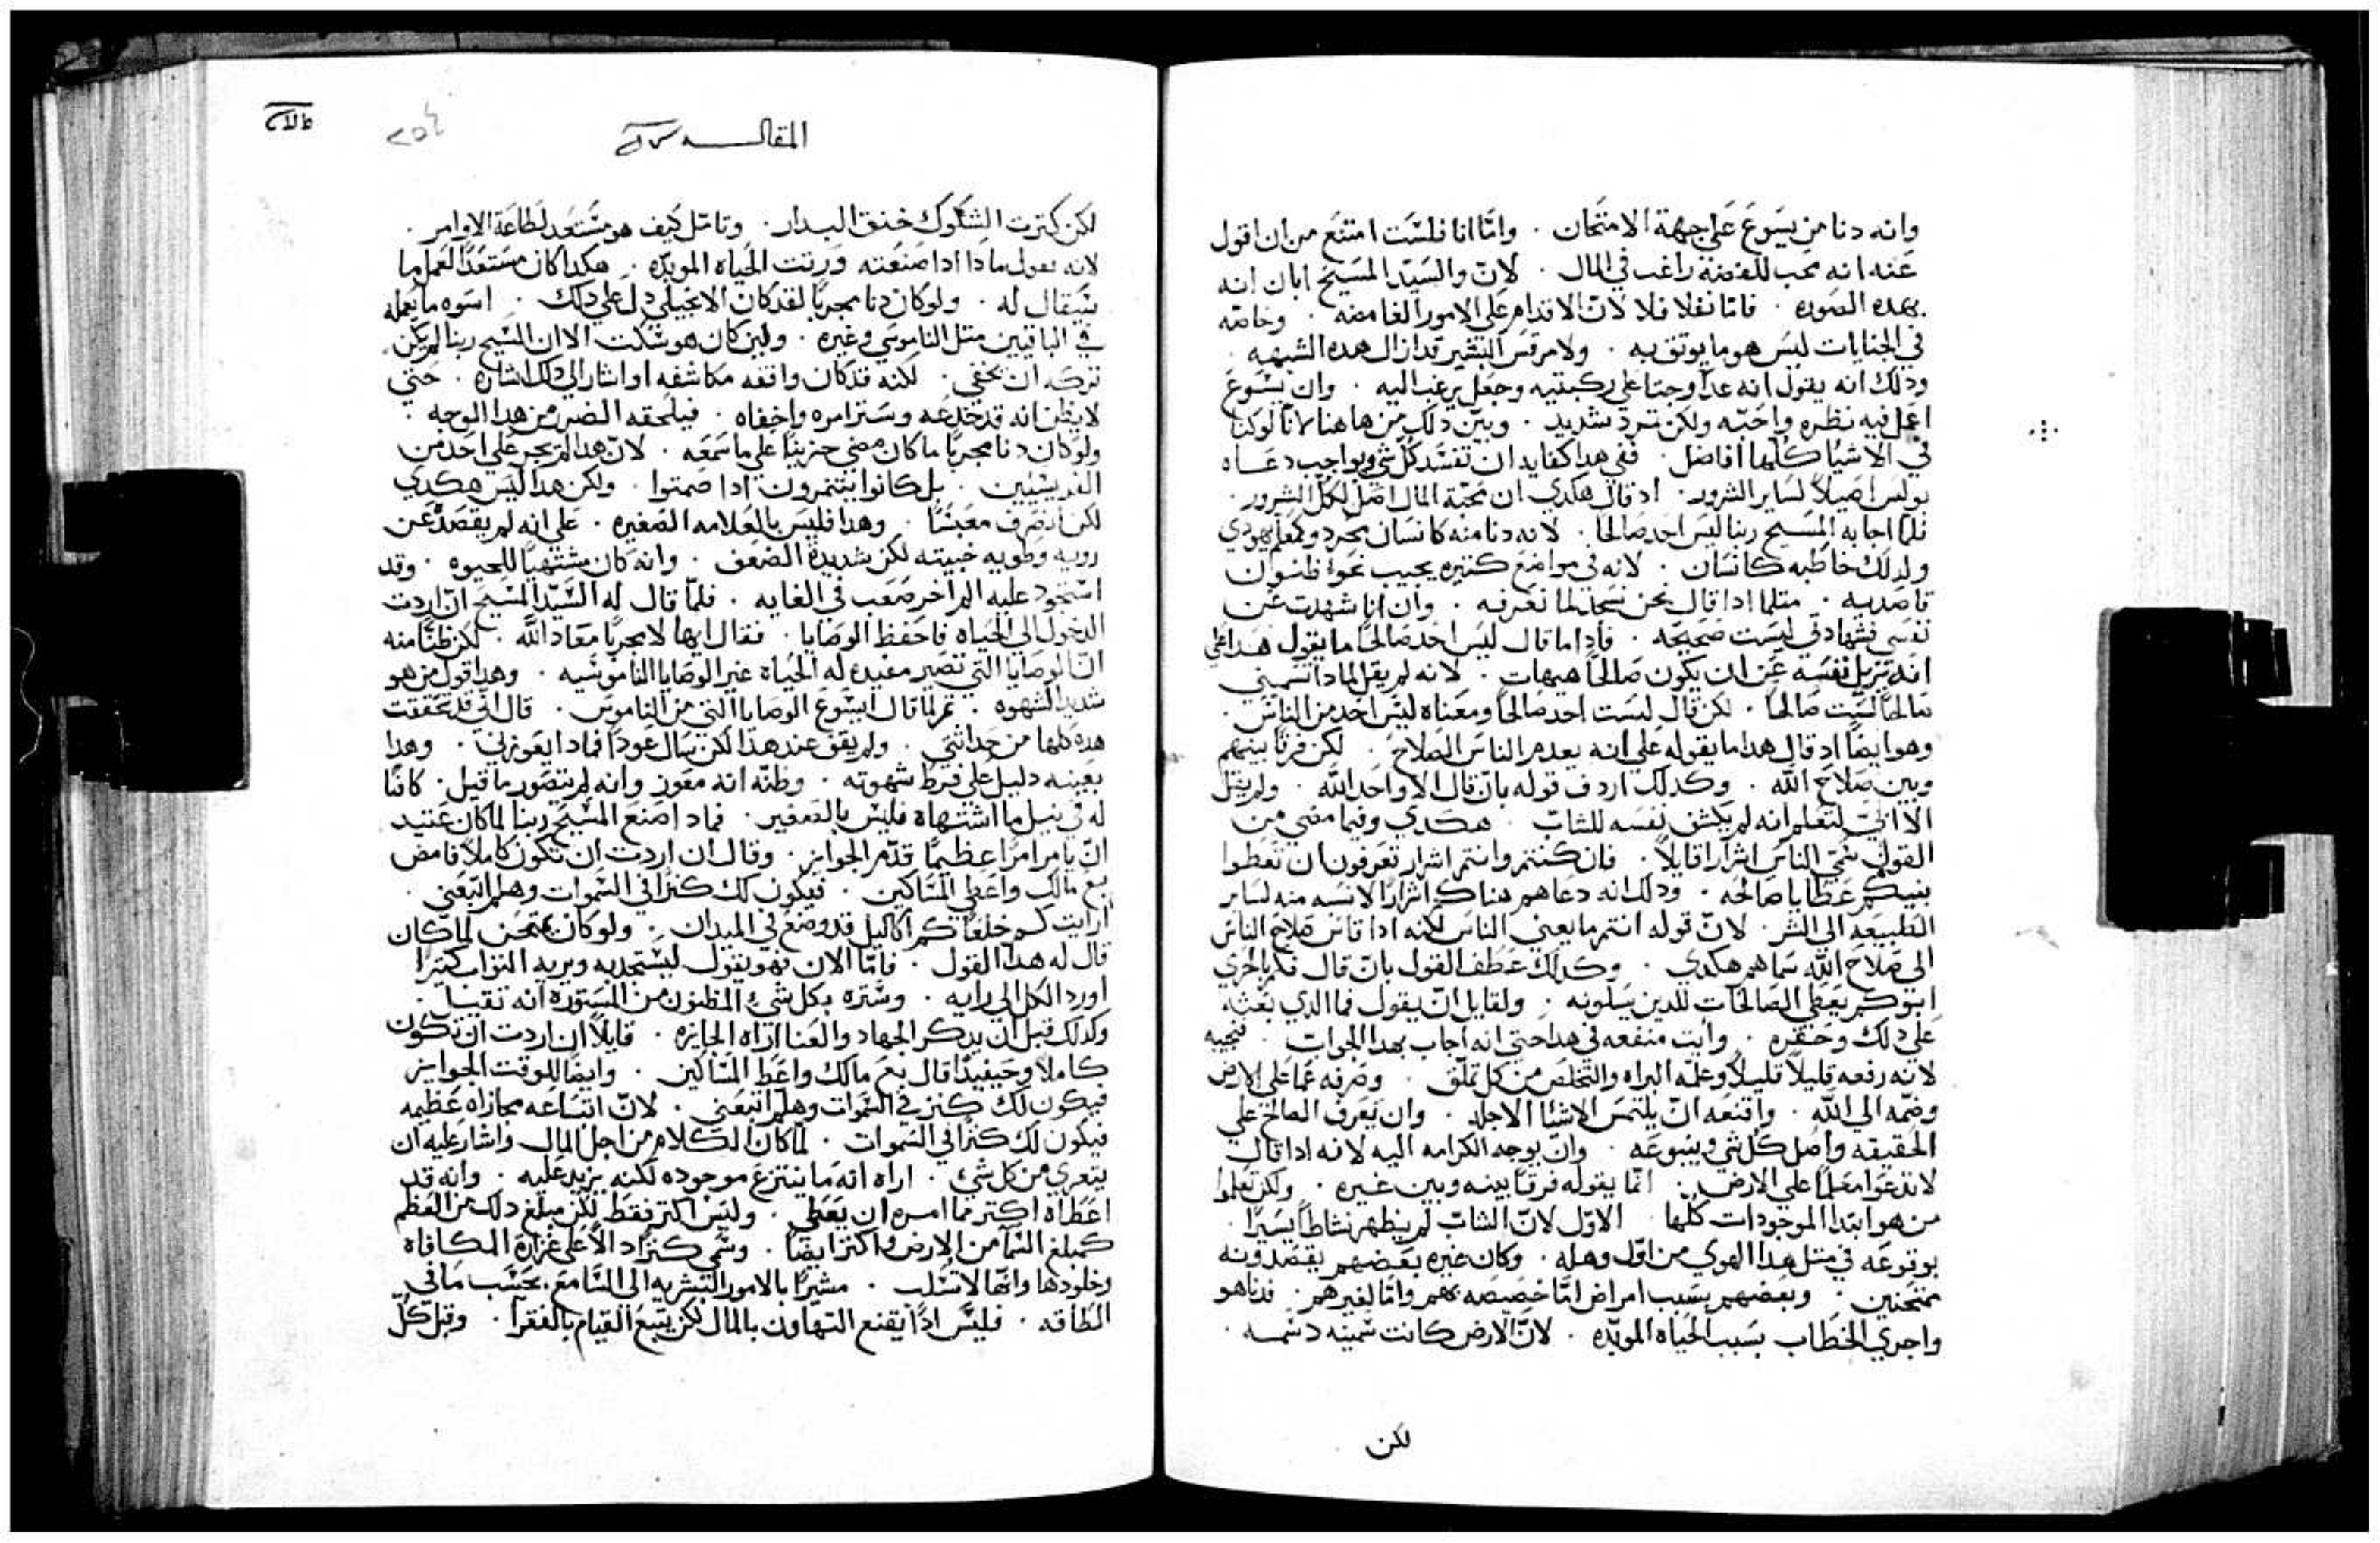 وانه دنا من يسوع على جهة الامتحان . وامّا انا فلست امتنع من ان اقول
عنه انه محب للفضه راغب في المال . لانّ والسيّد المسيح ابان انه
بهده الصوره . فامّا نغلا فلا لانّ الاقدام على الامور الغامضه . وخاصّه
في الجنايات ليس هو ما يوتق به . ولامرقس البشير قد ازال هده الشبهه .
ودلك انه يقول انه عدا وجتا على ركبتيه وجعل يرغب اليه . وان يسوع
اعمل فيه نظره واحبّه ولكن تمرد شديد . وبيّن دلك من هاهنا لانّا لو كنا
في الاشيا كلها افاضل . ففي هدا كفايه ان تفسد كل شي وبواجب دعاه
بولس اصيلاً لساير الشرور . اد قال هكدي ان محبّة المال اصل لكل الشرور .
فلما اجابه المسيح ربنا ليس احد صالحا . لانه دنا منه كانسان مجرد وكمعلم يهودي
ولدلك خاطبه كانسان . لانه في مواضع كتيره يجيب نحوا ظنون
قاصديه . متلما ادا قال نحن نسجد لما نعرفه . وان انا شهدت عن
نفسي فشهادتي ليست صحيحه . فادا ما قال ليس احد صالحاً ما يقول هدا على
انه يزيل نفسه عن ان يكون صالحاً هيهات . لانه لم يقل لمادا تسميني
صالحاً لست صالحا . لكن قال ليست احد صالحاً ومعناه ليس احد من الناس .
وهو ايضاً اد قال هدا ما يقوله على انه يعدم الناس الصلاح . لكن فرقاً بينهم
وبين صلاح الله . وكدلك اردف قوله بان قال الا واحد الله . ولم يقل
الا ابي لتعلم انه لم يكشف نفسه للشابّ . هكدي وفيما مضي من
القول سمّي الناس اشراراً قايلاً . فان كنتم وانتم اشرار تعرفون ان تعطوا
بنيكم عطايا صالحه . ودلك انه دعاهم هناك اشراراً لا نسبه منه لساير
الطبيعه الى الشر . لانّ قوله انتم ما يعني الناس لكنه ادا قاس صلاح الناس
الى صلاح الله سماهم هكدي . وكدلك عطف القول بان قال فكم بالحري
ابوكم يعطي الصالحات للدين يسلونه . ولقايل انّ يقول فما الدي بعثه
على دلك وحفزه . وايت منفعه في هدا حتي انه اجاب بهدا الجواب . فنجيبه
لانه رفعه قليلاً قليلاً وعلّمه البراه والتخلص من كل تملّق . وصرفه عما على الارض
وضمّه الى الله . واقنعه انّ يلتمس الاشيا الاجله . وان يعرف الصالح على
الحقيقه واصل كل شي وينبوعه . وان يوجه الكرامه اليه لانه ادا قال
لا تدعوا معلماً على الارض . انّما يقوله فرقاً بينه وبين غيره . ولكن تعلموا
من هو ابتدا الموجودات كلها . الاوّل لانّ الشابّ لم يظهر نشاطاً يسيراً .
بوقوعه في متل هدا الهوي من اوّل وهله . وكان غيره بعضهم يقصدونه
ممتحنين . وبعضهم بسبب امراض امّا خصيصه بهم وامّا لغيرهم . فدنا هو
واجري الخطاب بسبب الحياه الموبده . لانّ الارض كانت سمينه دسمه .
لكن
المقالـــه
لكن كترت الشكوك خنق البدار . وتامّل كيف هو مستعد لطاعة الاوامر .
لانه يقول مادا ادا صنعته ورتت الحياه الموبّده . هكدا كان مستعدّاً لعمل ما
سيقال له . ولو كان دنا مجرباً لقد كان الانجيلي دل على دلك . اسوه ما يعمله
في الباقيين متل الناموسي وغيره . ولين كان هو سكت الا ان المسيح ربنا لم يكن
تركه ان يخفي . لكنه قد كان واقفه مكاشفه او اشار الى دلك اشاره . حتي
لا يظن انه قد خدعه وستر امره واخفاه . فيلحقه الضرر من هدا الوجه .
ولو كان دنا مجرباً ما كان مضي حزيناً على ما سمعه . لانّ هدا لم يجر على احد من
الفريسيين . بل كانوا يتنمرون ادا صمتوا . ولكن هدا ليس هكدي
لكن انصرف معبساً . وهدا فليس بالعلامه الصغيره . على انه لم يقصد عن
رويه وطويه خبيته لكن شديدة الضعف . وانه كان مشتهياً للحيوه . وقد
استحود عليه الم اخر صعب في الغايه . فلمّا قال له السيّد المسيح ان اردت
الدخول الى الحياه فاحفظ الوصايا . فقال ايها لا مجرباً معاد الله . لكن ظنّاً منه
انّ الوصايا التي تصير مفيده له الحياة غير الوصايا الناموسيه . وهدا قول من هو
شديد الشهوه . تم لما قال ايسوع الوصايا التي من الناموس . قال اني قد حفظت
هده كلها من حداتتي . ولم يقف عند هدا لكن سال عوداً فمادا يعوزني . وهدا
بعينه دليل على فرط شهوته . وظنّه انه معوز وانه لم يتصور ما قيل . كافياً
له في نيل ما اشتهاه فليس بالصغير . فمادا صنع المسيح ربنا لما كان عتيد
انّ يامر امراً عظيماً قدّم الجوايز . وقال ان اردت ان تكون كاملاً فامض
بع مالك واعطي المساكين . فيكون لك كنزاً في السموات وهلم اتبعني .
ارايت كم خلعاً كم اكاليل قد وضع في الميدان . ولو كان يمتحن لما كان
قال له هدا القول . فامّا الان فهو يقول ليستجدبه ويريه التواب كتيراً
اورد الكل الى رايه . وستره بكل شي المظنون من المستوره انه تقيل .
وكدلك قبل ان يدكر الجهاد والعنا اراه الجايزه . قايلاً ان اردت ان تكون
كاملاً وحينيداً قال بع مالك واعط المساكين . وايضاً للوقت الجوايز
فيكون لك كنز في السموات وهلم اتبعني . لانّ اتباعه مجازاه عظيمه
فيكون لك كنزاً في السموات . لما كان الكلام من اجل المال واشار عليه ان
يتعري من كل شي . اراه انه ما ينتزع موجوده لكنه يزيد عليه . وانه قد
اعطاه اكتر مما امره ان يعطي . وليس اكتر فقط لكن مبلغ دلك من العظم
كمبلغ السما من الارض واكتر ايضاً . وسمي كنزاً دالاً على غزارة المكافاه
وخلودها وانها لا تسلب . مشيراً بالامور البشريه الى السامع بحسب ما في
الطاقه . فليس اداً يقنع التهاون بالمال لكن يتبع القيام بالفقرا . وقبل كل